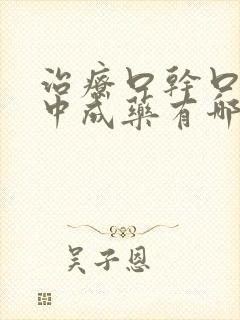 治療口幹口
中成藥有哪
吴子恩